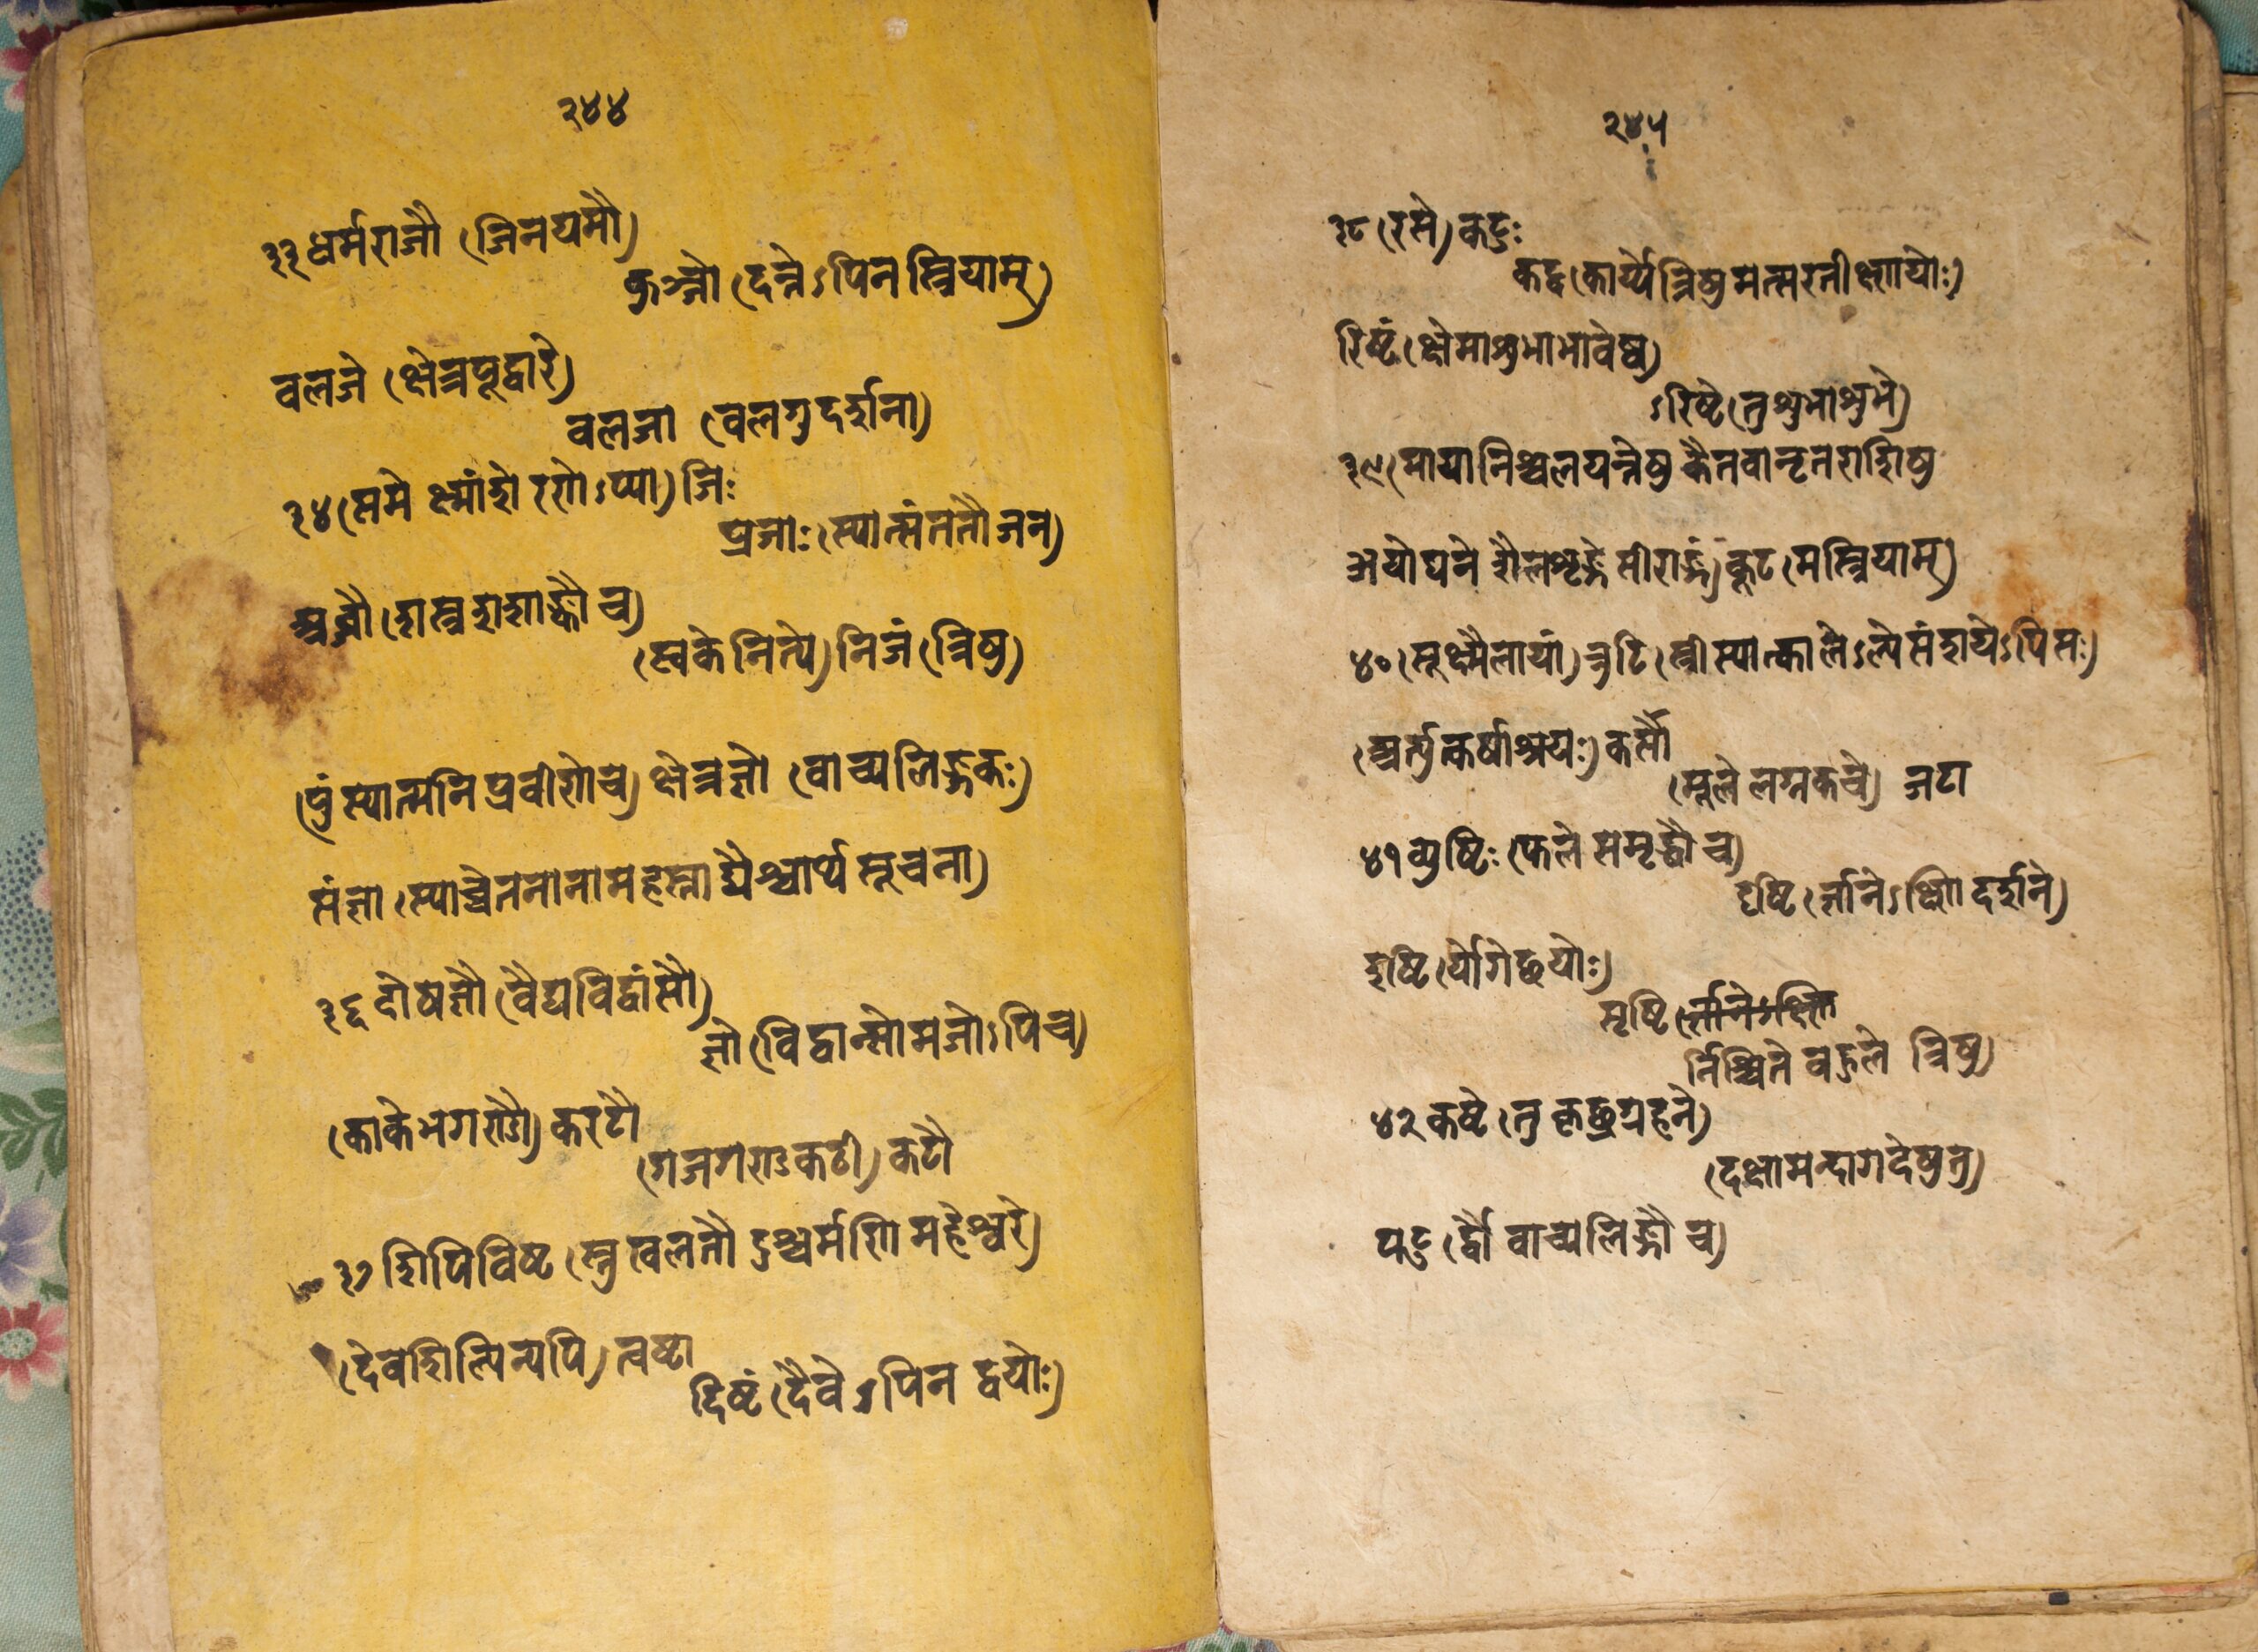 २४४
३३ धर्मराजौ (जिनयमौ)
कुञ्जो (दन्ते ऽपि न स्त्रियाम्)
वलजे (क्षेत्रपूद्वारे)
वलजा (वलगुदर्शना)
३४ (समे क्ष्मांशे रणेऽप्या) जिः
प्रजाः (स्यात्संततौ जने)
अब्जौ (शेखशशाङ्कौ च)
(स्वके नित्ये) निजं (त्रिषु)
(पुंस्यात्मनि प्रवीणे च) क्षेत्रज्ञो (वाच्यलिङ्गकः)
संज्ञा (स्याच्चेतनानामहस्ताद्यैश्चार्थसूचना)
३६ दोषज्ञौ (वैद्यविद्वांसौ)
ज्ञो (विद्वान्सोमजोऽपि च)
(काकेभगण्डौ) करटौ
(गजगण्डकटी) कटौ
३७ शिपिविष्ट (स्तु खलतौ दुश्चर्मणि महेश्वरे)
(देवशिल्पिन्यपि) त्वष्टा
दिष्टं (दैवेऽपि न द्वयोः)
२४५
३८ (रसे) कटुः
कट्व (कार्य्ये त्रिषु मत्सरतीक्ष्णयोः)
रिष्टं (क्षेमाशुभाभावेष्व)
ऽरिष्टे (तु शुभाशुभे)
३९ (मायानिश्चलयन्त्रेषु कैतवानृतराशिषु
अयोघने शैलशृङ्गे सीराङ्गे) कूट (मस्त्रियाम्)
४० (सूक्ष्मैलायां) त्रुटि (स्त्री स्यात्कालेऽल्पे संशयेऽपि सः)
(अर्त्युत्कर्षाश्रयः) कर्सौ
(मूले लग्नकचे) जटा
४१ व्युष्टिः (फले समृद्धौ च)
दृष्टि (र्ज्ञानेऽक्ष्णि दर्शने)
इष्टि (र्योगेछयोः)
सृष्टि (र्ज्ञानेऽक्ष्णि
र्निश्चिते बहुले त्रिषु)
४२ कष्टे (तु कृछ्रगहने)
(दक्षामन्दागदेषु तु)
पटु (र्द्वौ वाच्यलिङ्गौ च)